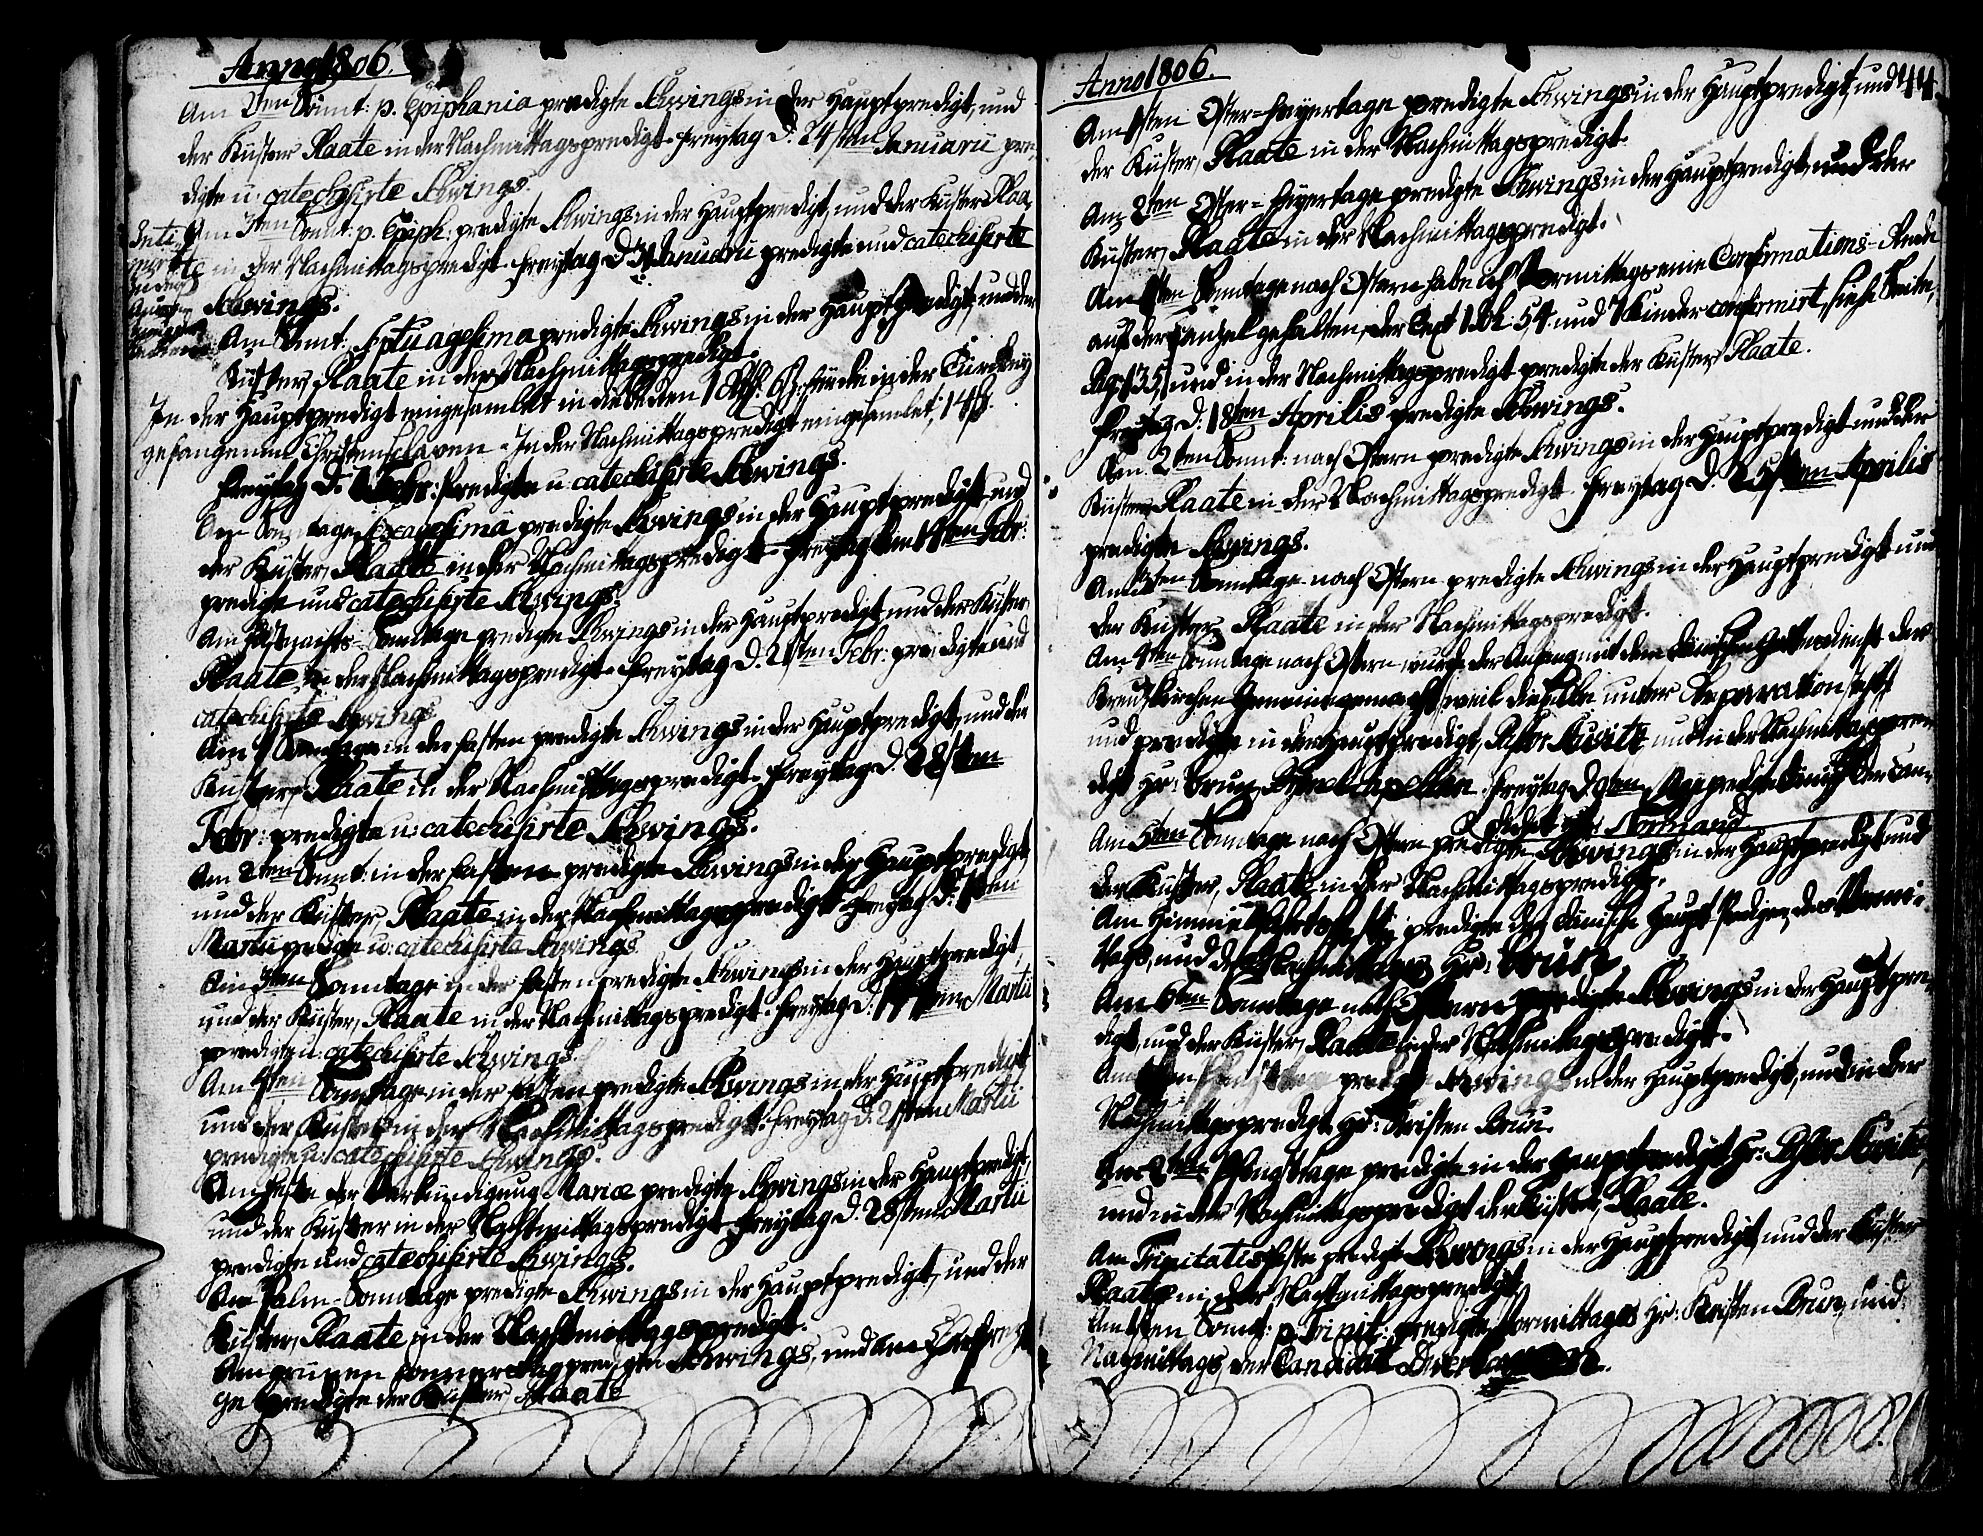 Anno 1806.
Am 2ten Sonnt: p. Epiphania predigte Awings in der Hauptpredigt, und
der Küster Plaate in der Nachmittagspredigt. Freytag d. 24sten Januarii pre-
digte u: catechisirte Awings.
Am 3ten Sonnt: p. Epiph: predigte Awings in der Hauptpredigt, und der Küster Plaa-
te in der Nachmittagspredigt. Freytag d. 31 Januarii predigte und catechisirte
Awings.
Am Sonnt: Septuagesima predigte Awings in der Hauptpredigt, und der
Küster, Plaate in der Nachmittagspredigt.
In der Hauptpredigt eingesamlet in die Becken für die in der Türckey
gefangenen Christensclaven. In der Nachmittagspredigt eingesamlet, 14 ß.
Freytag d. Febr: predigte u: catechisirte Awings.
Am Sonntage Sexagesima predigte Awings in der Hauptpredigt, und
der Küster, Plaate in der Nachmittagspredigt. Freytag den 14ten Febr:
predigte und catechisirte Awings.
Am Fastnachts-Sonntage predigte Awings in der Hauptpredigt und der Küster
Plaate, in der Nachmittagspredigt. Freytag d. 21sten Febr: predigte und
catechisirte Awings.
Am 1 Sonntage in der Fasten predigte Awings in der Hauptpredigt, und der
Küster, Plaate in der Nachmittagspredigt. Freytag d. 28sten
Febr: predigte u: catechisirte Awings.
Am 2ten Sonnt: in der Fasten predigte Awings in der Hauptpredigt,
und der Küster, Plaate in der Nachmittagspredigt. Freytag d.
Martii predigte u: catechisirte Awings.
Am 3ten Sonntage in der Fasten predigte Awings in der Hauptpredigt,
und der Küster, Plaate in der Nachmittagspredigt. Freytag d. Martii
predigte u: catechisirte Awings.
Am 4ten Sonntage in der Fasten predigte Awings in der Hauptpredigt
und der Küster in der Nachmittagspredigt. Freytag d. 21sten Martii
predigte u: catechisirte Awings.
Am Feste der Verkündigung Mariæ predigte Awings in der Hauptpredigt,
und der Küster in der Nachmittagspredigt. Freytag d. 28sten Martii
predigte und catechisirte Awings.
Am Palm-Sonntage predigte Awings in der Hauptpredigt, und der
Küster, Plaate in der Nachmittagspredigt.
Am grünen Donnerstag predigte Awings, und am Charfreyta-
ge predigte der Küster, Plaate
Anno 1806.
44
Am 1sten Oster-Feyertage predigte Awings in der Hauptpredigt, und
der Küster, Plaate in der Nachmittagspredigt.
Am 2ten Oster-Feyertage predigte Awings in der Hauptpredigt, und der
Küster, Plaate in der Nachmittagspredigt.
Am 1sten Sonntage nach Ostern habe ich Vormittags eine Confirmations-Rede
auf der Canzel gehalten, der Text und Kinder confirmirt, siehe Seite,
Pag: 135, und in der Nachmittagspredigt predigte der Küster, Plaate.
Freytag d. 18ten Aprilis predigte Awings.
Am 2ten Sonnt: nach Ostern predigte Awings in der Hauptpredigt und der
Küster, Plaate in der Nachmittagspredigt. Freytag d. 25sten Aprilis
predigte Awings.
Am 3ten Sonntage nach Ostern predigte Awings in der Hauptpredigt und
der Küster, Plaate in der Nachmittagspredigt.
Am 4ten Sonntage nach Ostern, wurde der Anfang mit dem Dänischen Gottesdienst der
Kreuzkirchen Gemeine gemacht, weil dieselbe unter Reparation steht
und predigte in der Hauptpredigt, und in der Nachmittagspre-
digt Hr: Freytag d 9ten predigte Dänisch der Can-
didat Hr: Normand
Am 5ten Sonntage nach Ostern predigte Awings in der Hauptpredigt und
der Küster, Plaate in der Nachmittagspredigt.
Am Himmelfahrtsfeste predigte der Dänische Haupt Prediger des Vormi-
tags, und des Nachmittags Hr: Bruun
Am 6ten Sonntage nach Ostern predigte Awings in der Hauptpre-
digt, und der Küster, Plaate in der Nachmittagspredigt.
Am predigte Awings in der Hauptpredigt, und in der
Nachmittagspredigt Hr: Kristen Bruun.
Am 2ten Pfingsttage predigte in der Hauptpredigt Hr:
und in der Nachmittagspredigt der Küster, Plaate.
Am Trinitatisfeste predigte Awings in der Hauptpredigt, und der Küster
Plaate in der Nachmittagspredigt.
Am 1sten Sonnt: p. Trinit: predigte Vormittags Hr: Kristen Bruun, und
Nachmittags, der Candidat